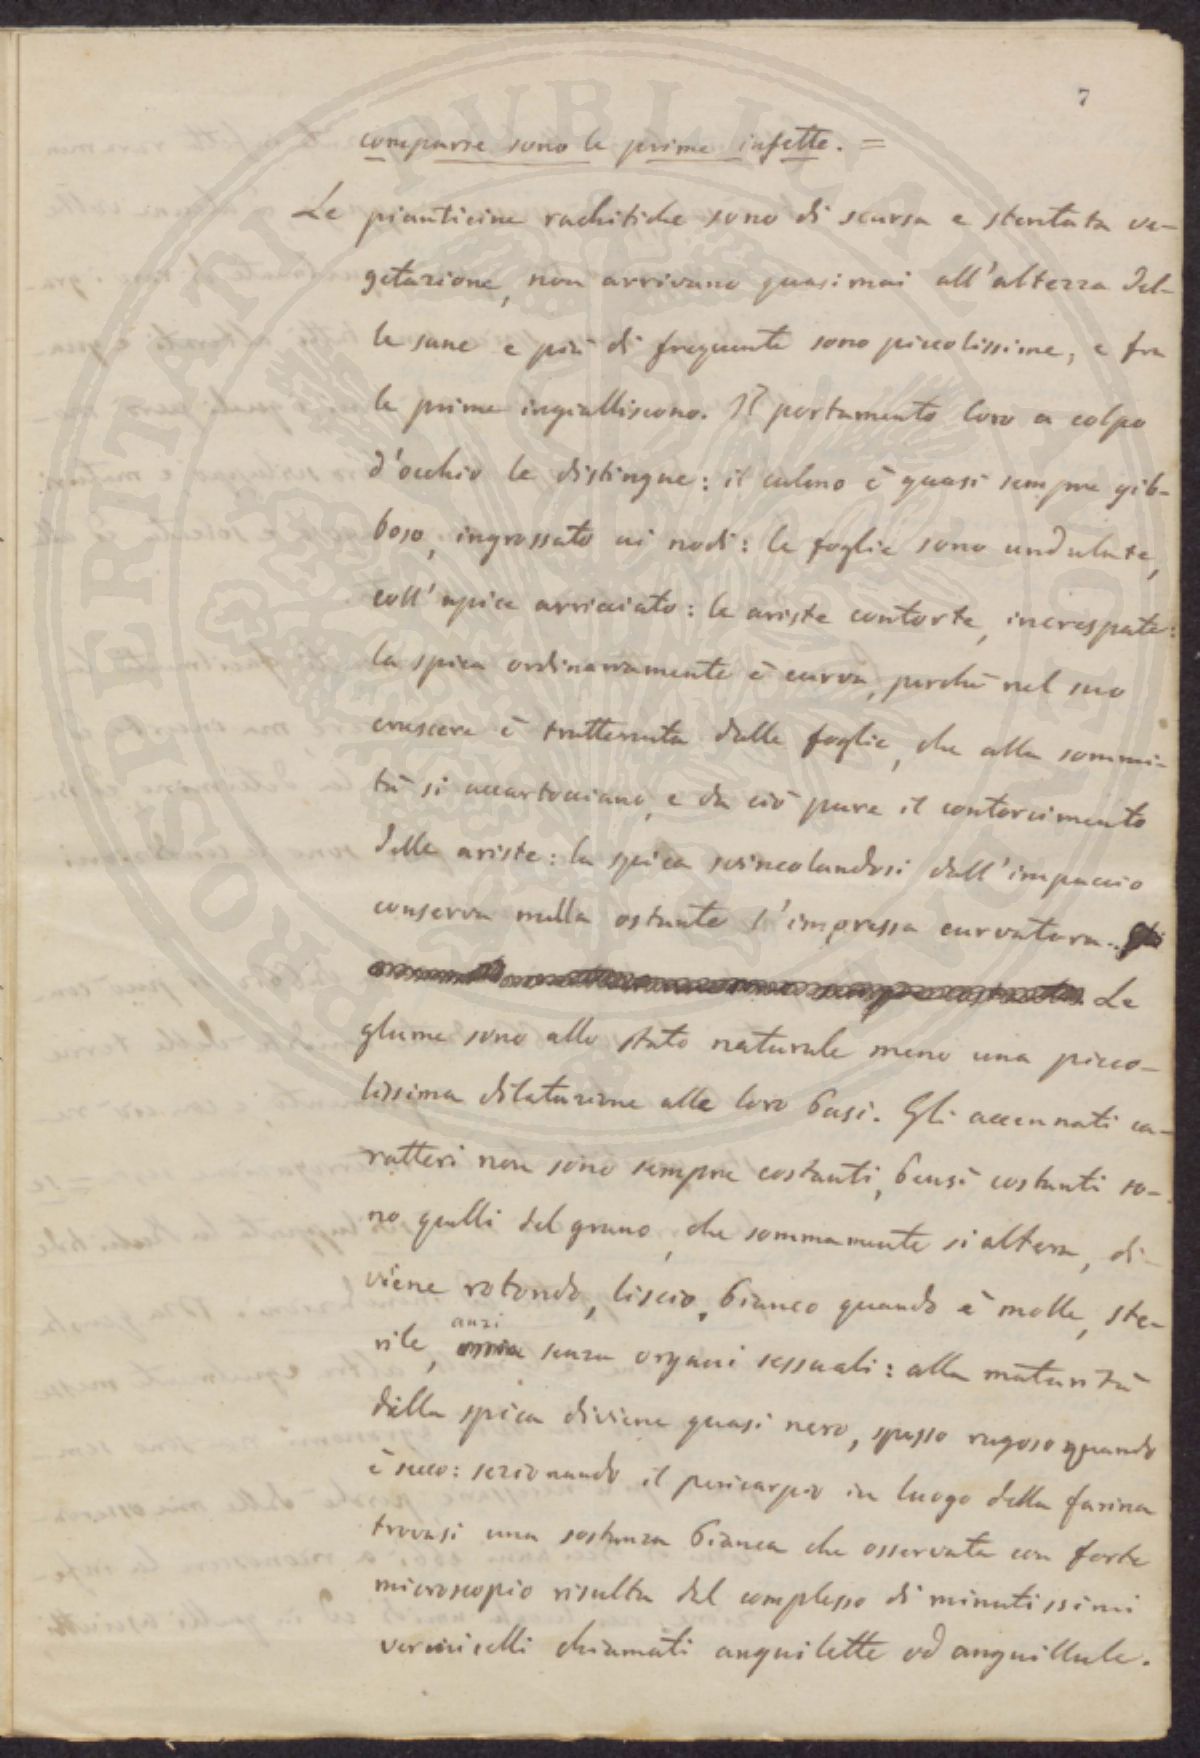 7
comparse sono le prime infette. =
Le pianticine rachitiche sono di scarsa e stentata ve-
getazione, non arrivano quasimai all'altezza del-
le sane e più di frequente sono piccolissime, e fra
le prime ingialliscono. Il portamento loro a colpo
d'occhio le distingue: il culmo è quasi sempre gib-
boso, ingrossato ai nodi: le foglie sono undulate,
coll'apice arricciato: le ariste contorte, increspate:
la spica ordinariamente è curva, perchè nel suo
crescere è trattenuta dalle foglie, che alla sommi-
tà si accartocciano, e da ciò pure il contorcimento
delle ariste: la spica svincolandosi dall'impaccio
conserva nulla ostante l'impressa curvatura.
Le
glume sono allo stato naturale meno una picco-
lissima dilatazione alle loro basi. Gli accennati ca-
ratteri non sono sempre costanti, bensì costanti so-
no quelli del grano, che sommamente si altera, di-
viene rotondo, liscio, bianco quando è molle, ste-
rile, anzi senza organi sessuali: alla maturità
della spica diviene quasi nero, spesso rugoso quando
è secco: sezionando il pericarpio in luogo della farina
trovasi una sostanza bianca che osservata con forte
microscopio risulta del complesso di minutissimi
vermicelli chiamati anguilette od anguillule.
PROSPERITATI PUBLICAE